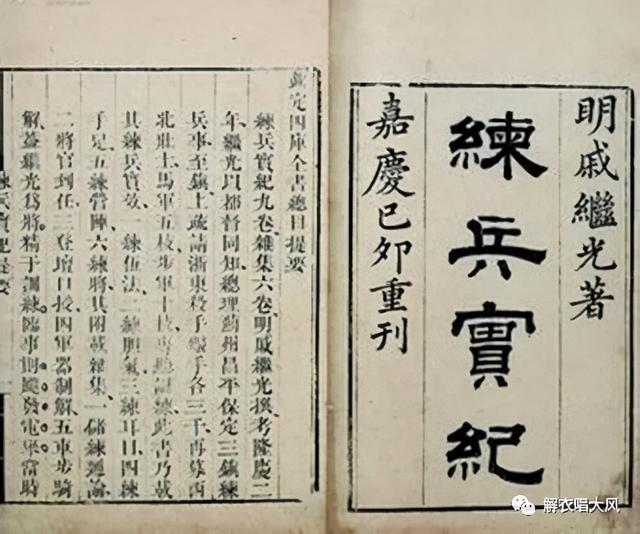 明戚繼光著
練兵實紀
嘉慶巳卯重刊
欽定四庫全書總目提要
練兵實紀九卷雜集六卷明戚繼光撰考隆慶二
年繼光以都督同知總理薊州昌平保定三鎮練
兵事至鎮上疏請浙東殺手礮手各三千再募西
北壯士馬軍五枝步軍十枝專聽訓練此書乃載
其練兵實效一練伍法二練膽氣三練耳目四練
手足五練營陣六練將其附載雜集一儲練通論
二將官到任三登壇口授四軍器制解五車步騎
解蓋繼光爲將精于訓練臨事則飈發電舉當時
練兵實紀提要
解衣唱大风